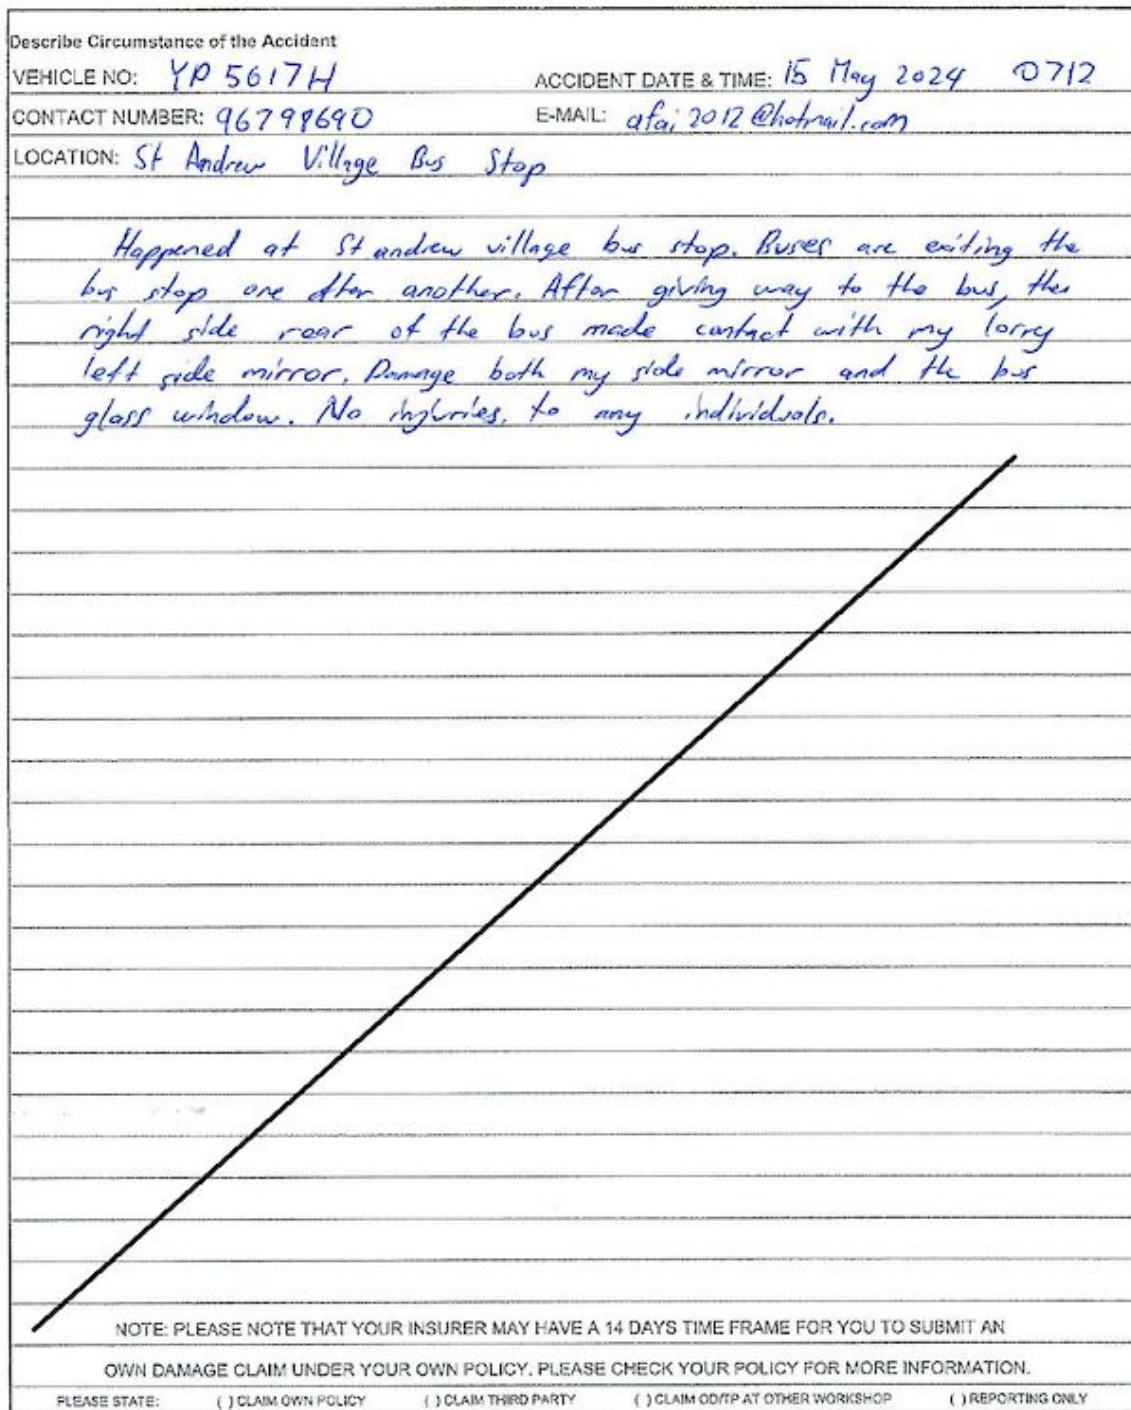 Describe Circumstance of the Accident
VEHICLE NO: YP 5617H ACCIDENT DATE & TIME: 15 May 2024 0712
CONTACT NUMBER: 96798690 E-MAIL: afai2012@hotmail.com
LOCATION: St Andrew Village Bus Stop
Happened at St andrew village bus stop. Buses are exiting the
bus stop one after another. After giving way to the bus, the
right side rear of the bus made contact with my lorry
left side mirror. Damage both my side mirror and the bus
glass window. No injuries, to any individuals.
NOTE: PLEASE NOTE THAT YOUR INSURER MAY HAVE A 14 DAYS TIME FRAME FOR YOU TO SUBMIT AN
OWN DAMAGE CLAIM UNDER YOUR OWN POLICY. PLEASE CHECK YOUR POLICY FOR MORE INFORMATION.
PLEASE STATE: ( ) CLAIM OWN POLICY ( ) CLAIM THIRD PARTY ( ) CLAIM OD/TP AT OTHER WORKSHOP ( ) REPORTING ONLY